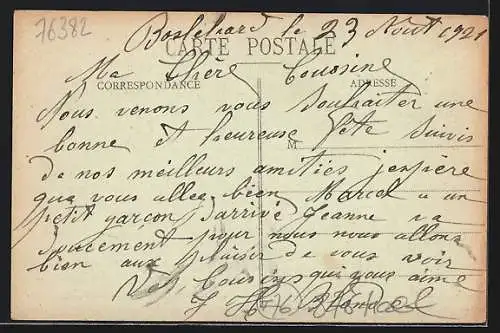 76382
Boslehard le 23 Août 1921
CARTE POSTALE
Ma Chère Cousine
CORRESPONDANCE ADRESSE
Nous venons vous souhaiter une
bonne et heureuse fête suivis
M
de nos meilleurs amities jespière
que vous allez bien Marcel a un
petit garçon d'arrivé Jeanne va
doucement pour nous nous allons
bien aux plaisir de vous voir
Vos Cousins qui vous aime